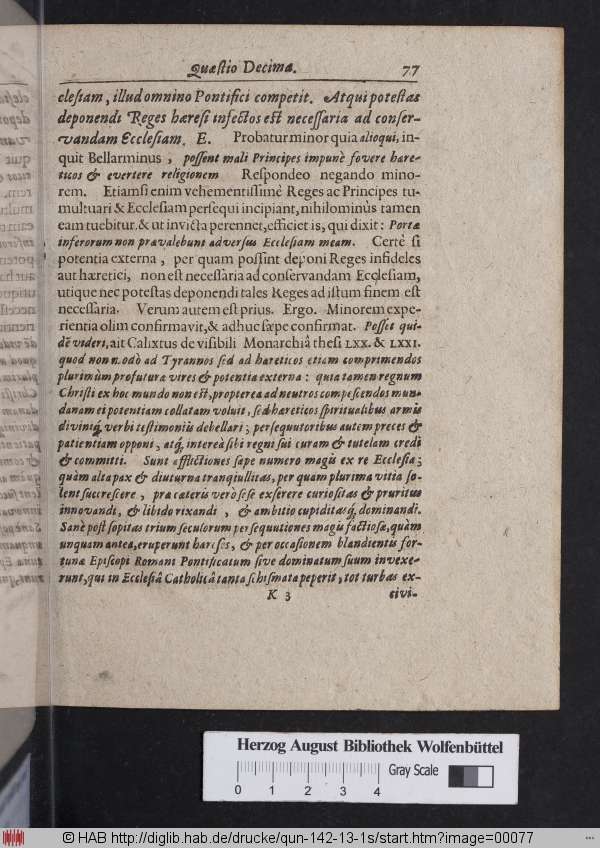 Quæstio Decima. 77
clesiam, illud omnino Pontifici competit. Atqui potestas
deponendi Reges hæresi infectos est necessaria ad conser-
vandam Ecclesiam. E. Probatur minor quia alioqui, in-
quit Bellarminus, possent mali Principes impunè fovere hære-
ticos & evertere religionem Respondeo negando mino-
rem. Etiamsi enim vehementissimè Reges ac Principes tu-
multuari & Ecclesiam persequi incipiant, nihilominùs tamen
eam tuebitur. & ut invicta perennet, efficiet is, qui dixit: Portæ
inferorum non prævalebunt adversus Ecclesiam meam. Certè si
potentia externa, per quam possint deponi Reges infideles
aut hæretici, non est necessaria ad conservandam Ecclesiam,
utique nec potestas deponendi tales Reges ad istum finem est
necessaria. Verum autem est prius. Ergo. Minorem expe-
rientia olim confirmavit, & adhuc sæpe confirmat. Posset qui-
dē videri, ait Calixtus de visibili Monarchiâ thesi LXX. & LXXI.
quod non modò ad Tyrannos sed ad hæreticos etiam comprimendos
plurimùm profuturæ vires & potentia externa: quia tamen regnum
Christi ex hoc mundo non est, propterea ad neutros compescendos mun-
danam ei potentiam collatam voluit, sed hæreticos spiritualibus armis
diviniq; verbi testimoniis debellari; persequutoribus autem preces &
patientiam opponi, atq; intereà sibi regni sui curam & tutelam credi
& committi. Sunt afflictiones sæpe numero magis ex re Ecclesiæ;
quàm alta pax & diuturna tranquillitas, per quam plurima vitia so-
lent succrescere, præ cæteris verò sese exserere curiositas & pruritus
innovandi, & libido rixandi, & ambitio cupiditasq; dominandi.
Sanè post sopitas trium seculorum persequutiones magis factiosæ, quàm
unquam antea, eruperunt hæreses, & per occasionem blandientis for-
tunæ Episcopi Romani Pontificatum sive dominatum suum invexe-
runt, qui in Ecclesiâ Catholicâ tanta schismata peperit, tot turbas ex-
K 3 civi-
Herzog August Bibliothek Wolfenbüttel
0 1 2 3 4 Gray Scale
© HAB http://diglib.hab.de/drucke/qun-142-13-1s/start.htm?image=00077